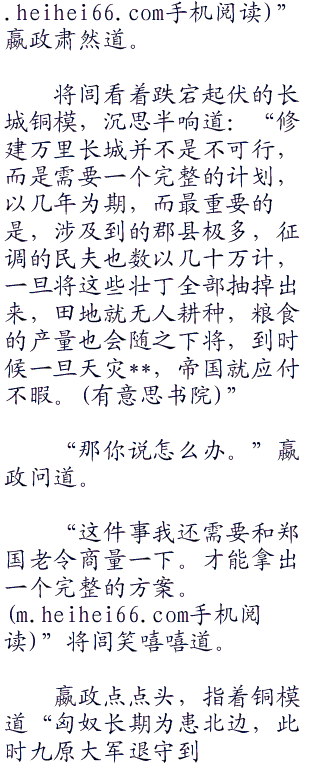 .heihei66.com手机阅读)”
嬴政肃然道。
将闾看着跌宕起伏的长
城铜模，沉思半响道：“修
建万里长城并不是不可行，
而是需要一个完整的计划，
以几年为期，而最重要的
是，涉及到的郡县极多，征
调的民夫也数以几十万计，
一旦将这些壮丁全部抽掉出
来，田地就无人耕种，粮食
的产量也会随之下将，到时
候一旦天灾**，帝国就应付
不暇。(有意思书院)”
“那你说怎么办。”嬴
政问道。
“这件事我还需要和郑
国老令商量一下。才能拿出
一个完整的方案。
(m.heihei66.com手机阅
读)”将闾笑嘻嘻道。
嬴政点点头，指着铜模
道“匈奴长期为患北边，此
时九原大军退守到